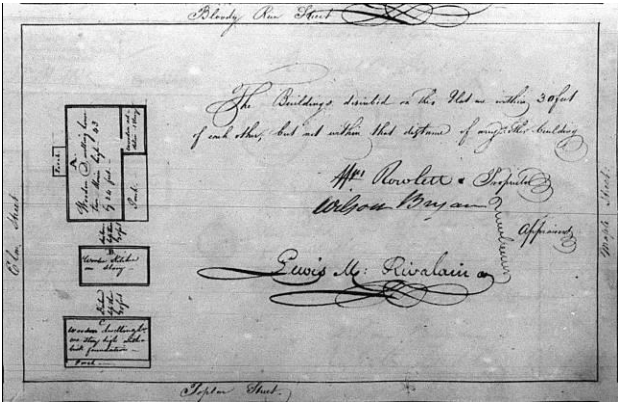 Bloody Run Street
The Buildings described on this Plat are within 30 feet
of each other, but not within that distance of any other building
Wm Rowlett Proprietor
Wilson Bryan
Appraisers
Lewis M: Rivalain
Elm Street
Maple Street
Porch
A
Wooden Dwelling house
two stories high 43
by 24 feet
Porch
Wooden Kitchen
1 Story
C
Wooden dwelling
one story high with a
brick foundation
Porch
Poplar Street.